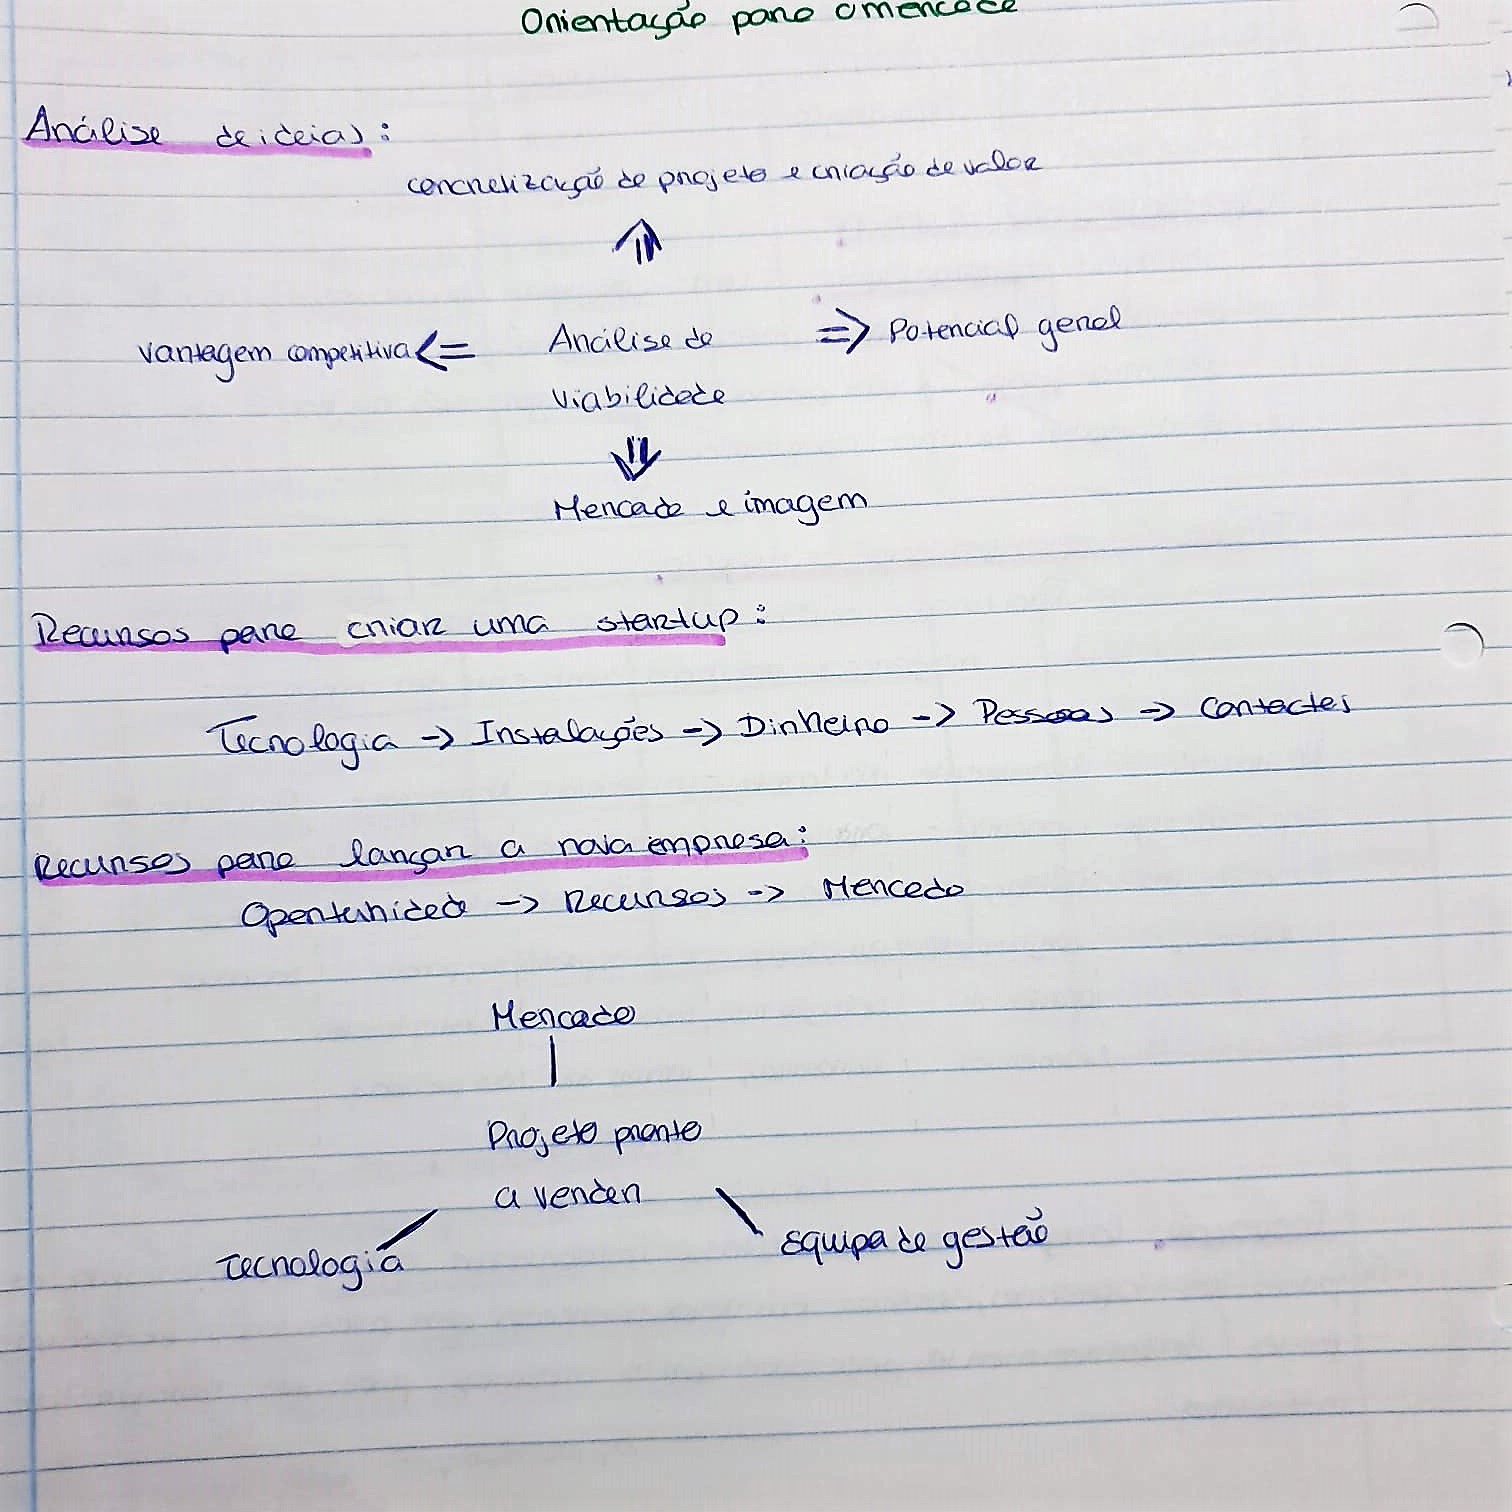 Orientação para o mercado
Análise de ideias:
concretização de projeto e criação de valor
⇑
vantagem competitiva <= Análise de => Potencial geral
viabilidade
⇓
Mercado e imagem
Recursos para criar uma startup:
Tecnologia -> Instalações -> Dinheiro -> Pessoas -> Contactos
Recursos para lançar a nova empresa:
Oportunidade -> Recursos -> Mercado
Mercado
Projeto pronto
a vender
Tecnologia Equipa de gestão